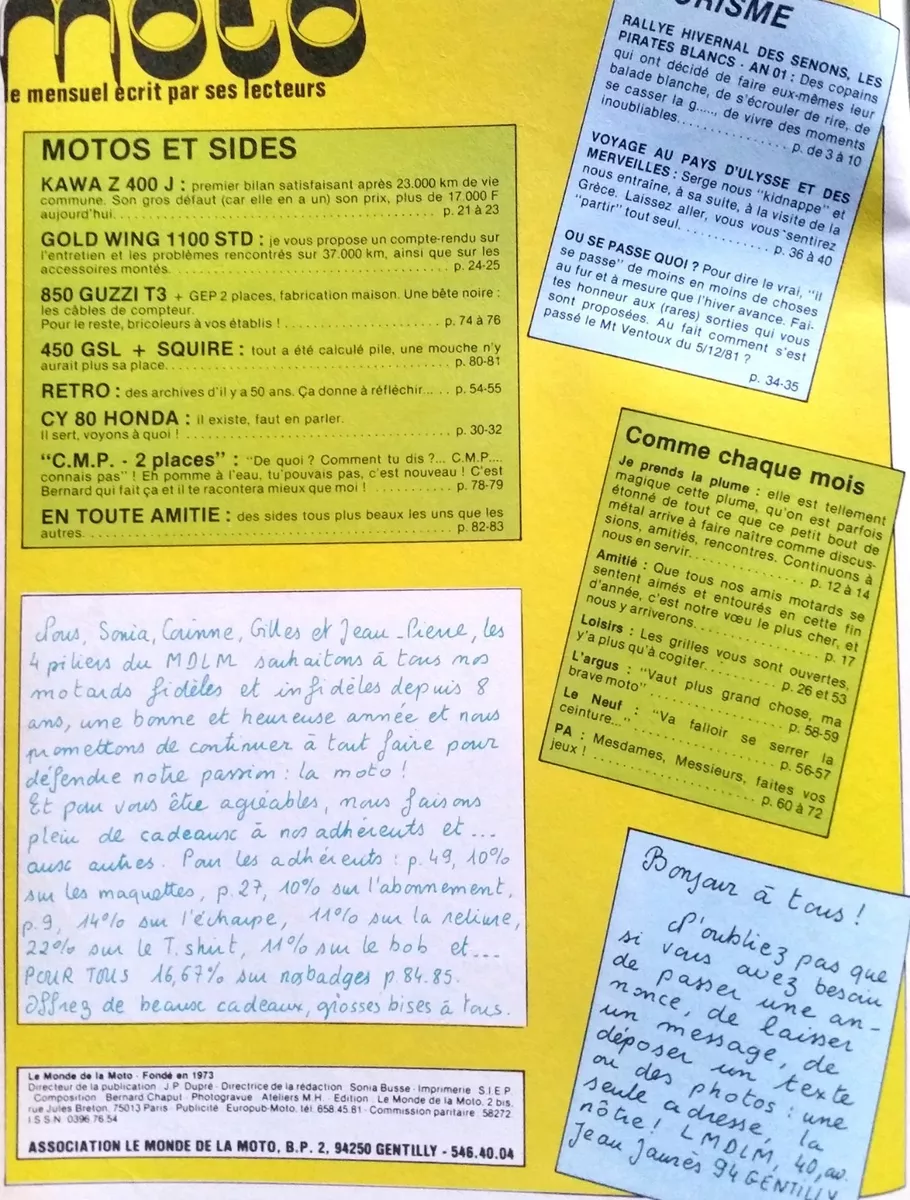 moto
le mensuel écrit par ses lecteurs
MOTOS ET SIDES
KAWA Z 400 J : premier bilan satisfaisant après 23.000 km de vie
commune. Son gros défaut (car elle en a un) son prix, plus de 17.000 F
aujourd'hui. p. 21 à 23
GOLD WING 1100 STD : je vous propose un compte-rendu sur
l'entretien et les problèmes rencontrés sur 37.000 km, ainsi que sur les
accessoires montés. p. 24-25
850 GUZZI T3 + GEP 2 places, fabrication maison. Une bête noire :
les câbles de compteur.
Pour le reste, bricoleurs à vos établis ! p. 74 à 76
450 GSL + SQUIRE : tout a été calculé pile, une mouche n'y
aurait plus sa place. p. 80-81
RETRO : des archives d'il y a 50 ans. Ça donne à réfléchir... p. 54-55
CY 80 HONDA : il existe, faut en parler.
Il sert, voyons à quoi ! p. 30-32
"C.M.P. - 2 places" : "De quoi ? Comment tu dis ?... C.M.P....
connais pas" ! Eh pomme à l'eau, tu'pouvais pas, c'est nouveau ! C'est
Bernard qui fait ça et il te racontera mieux que moi ! p. 78-79
EN TOUTE AMITIE : des sides tous plus beaux les uns que les
autres. p. 82-83
RISME
RALLYE HIVERNAL DES SENONS, LES
PIRATES BLANCS - AN 01 : Des copains
qui ont décidé de faire eux-mêmes leur
balade blanche, de s'écrouler de rire, de
se casser la g....., de vivre des moments
inoubliables. p. de 3 à 10
VOYAGE AU PAYS D'ULYSSE ET DES
MERVEILLES : Serge nous "kidnappe" et
nous entraîne, à sa suite, à la visite de la
Grèce. Laissez aller, vous vous sentirez
"partir" tout seul. p. 36 à 40
OU SE PASSE QUOI ? Pour dire le vrai, "il
se passe" de moins en moins de choses
au fur et à mesure que l'hiver avance. Fai-
tes honneur aux (rares) sorties qui vous
sont proposées. Au fait comment s'est
passé le Mt Ventoux du 5/12/81 ?
p. 34-35
Comme chaque mois
Je prends la plume : elle est tellement
magique cette plume, qu'on est parfois
étonné de tout ce que ce petit bout de
métal arrive à faire naître comme discus-
sions, amitiés, rencontres. Continuons à
nous en servir. p. 12 à 14
Amitié : Que tous nos amis motards se
sentent aimés et entourés en cette fin
d'année, c'est notre vœu le plus cher, et
nous y arriverons. p. 17
Loisirs : Les grilles vous sont ouvertes,
y'a plus qu'à cogiter. p. 26 et 53
L'argus : "Vaut plus grand chose, ma
brave moto" p. 58-59
Le Neuf : "Va falloir se serrer la
ceinture..." p. 56-57
PA : Mesdames, Messieurs, faites vos
jeux ! p. 60 à 72
Nous, Sonia, Corinne, Gilles et Jean-Pierre, les
4 piliers du MDLM souhaitons à tous nos
motards fidèles et infidèles depuis 8
ans, une bonne et heureuse année et nous
promettons de continuer à tout faire pour
défendre notre passion : la moto !
Et pour vous être agréables, nous faisons
plein de cadeaux à nos adhérents et...
aux autres. Pour les adhérents : p. 49, 10%
sur les maquettes, p. 27, 10% sur l'abonnement,
p. 9, 14% sur l'écharpe, 11% sur la reliure,
22% sur le T.shirt, 11% sur le bob et...
POUR TOUS 16,67% sur nos badges p. 84.85.
Offrez de beaux cadeaux, grosses bises à tous.
Bonjour à tous !
N'oubliez pas que
si vous avez besoin
de passer une an-
nonce, de laisser
un message, de
déposer un texte
ou des photos : une
seule adresse, la
nôtre ! LMDLM, 40, av.
Jean Jaurès 94 GENTILLY
Le Monde de la Moto - Fondé en 1973
Directeur de la publication J.P. Dupré - Directrice de la rédaction Sonia Busse - Imprimerie S.I.E.P.
Composition Bernard Chaput - Photogravue Ateliers M.H. - Edition Le Monde de la Moto, 2 bis,
rue Jules Breton, 75013 Paris - Publicité Europub-Moto, tél. 658.45.81 - Commission paritaire 58272
I.S.S.N. 0396.76.54
ASSOCIATION LE MONDE DE LA MOTO, B.P. 2, 94250 GENTILLY - 546.40.04